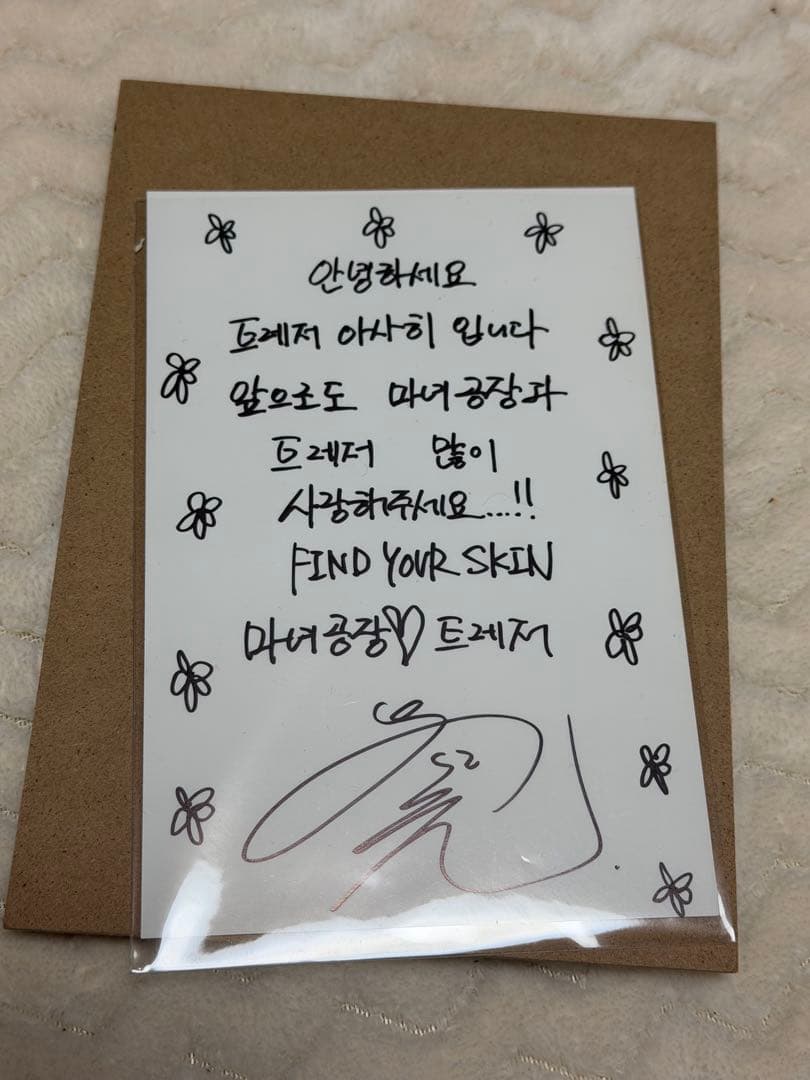 안녕하세요
트레저 아사히 입니다
앞으로도 마녀공장과
트레저 많이
사랑해주세요...!!
FIND YOUR SKIN
마녀공장♡트레저